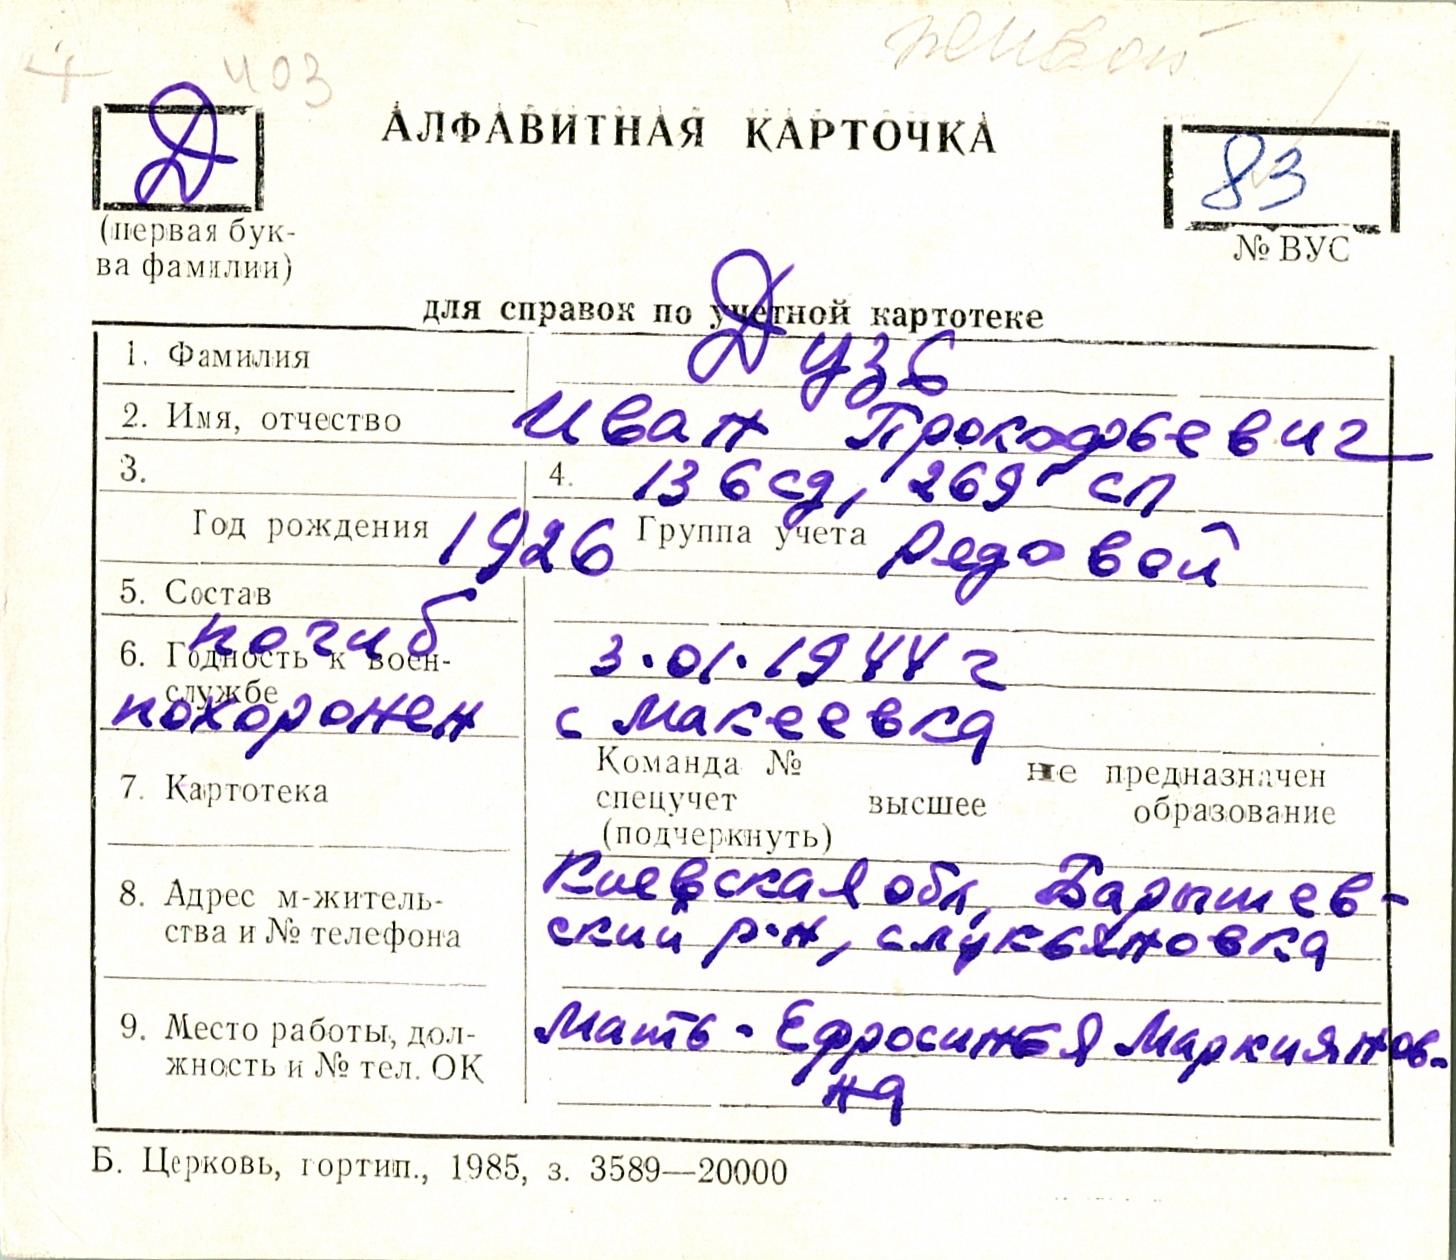 живой
403
Д
АЛФАВИТНАЯ КАРТОЧКА
83
(первая бук-
ва фамилии)
№ ВУС
для справок по учетной картотеке
1. Фамилия Дузь
2. Имя, отчество Иван Прокофьевич
3. 4. 136 сд, 269 сп
Год рождения 1926 Группа учета Редовой
5. Состав
погиб 3.01.1944 г
6. Годность к воен-
службе
похоронен с Макеевка
Команда № не предназначен
7. Картотека спецучет высшее образование
(подчеркнуть)
8. Адрес м-житель- Киевская обл, Барышев-
ства и № телефона ский р-н, с Лукьяновка
9. Место работы, дол- Мать - Ефросинья Маркиянов-
жность и № тел. ОК на
Б. Церковь, гортип., 1985, з. 3589—20000